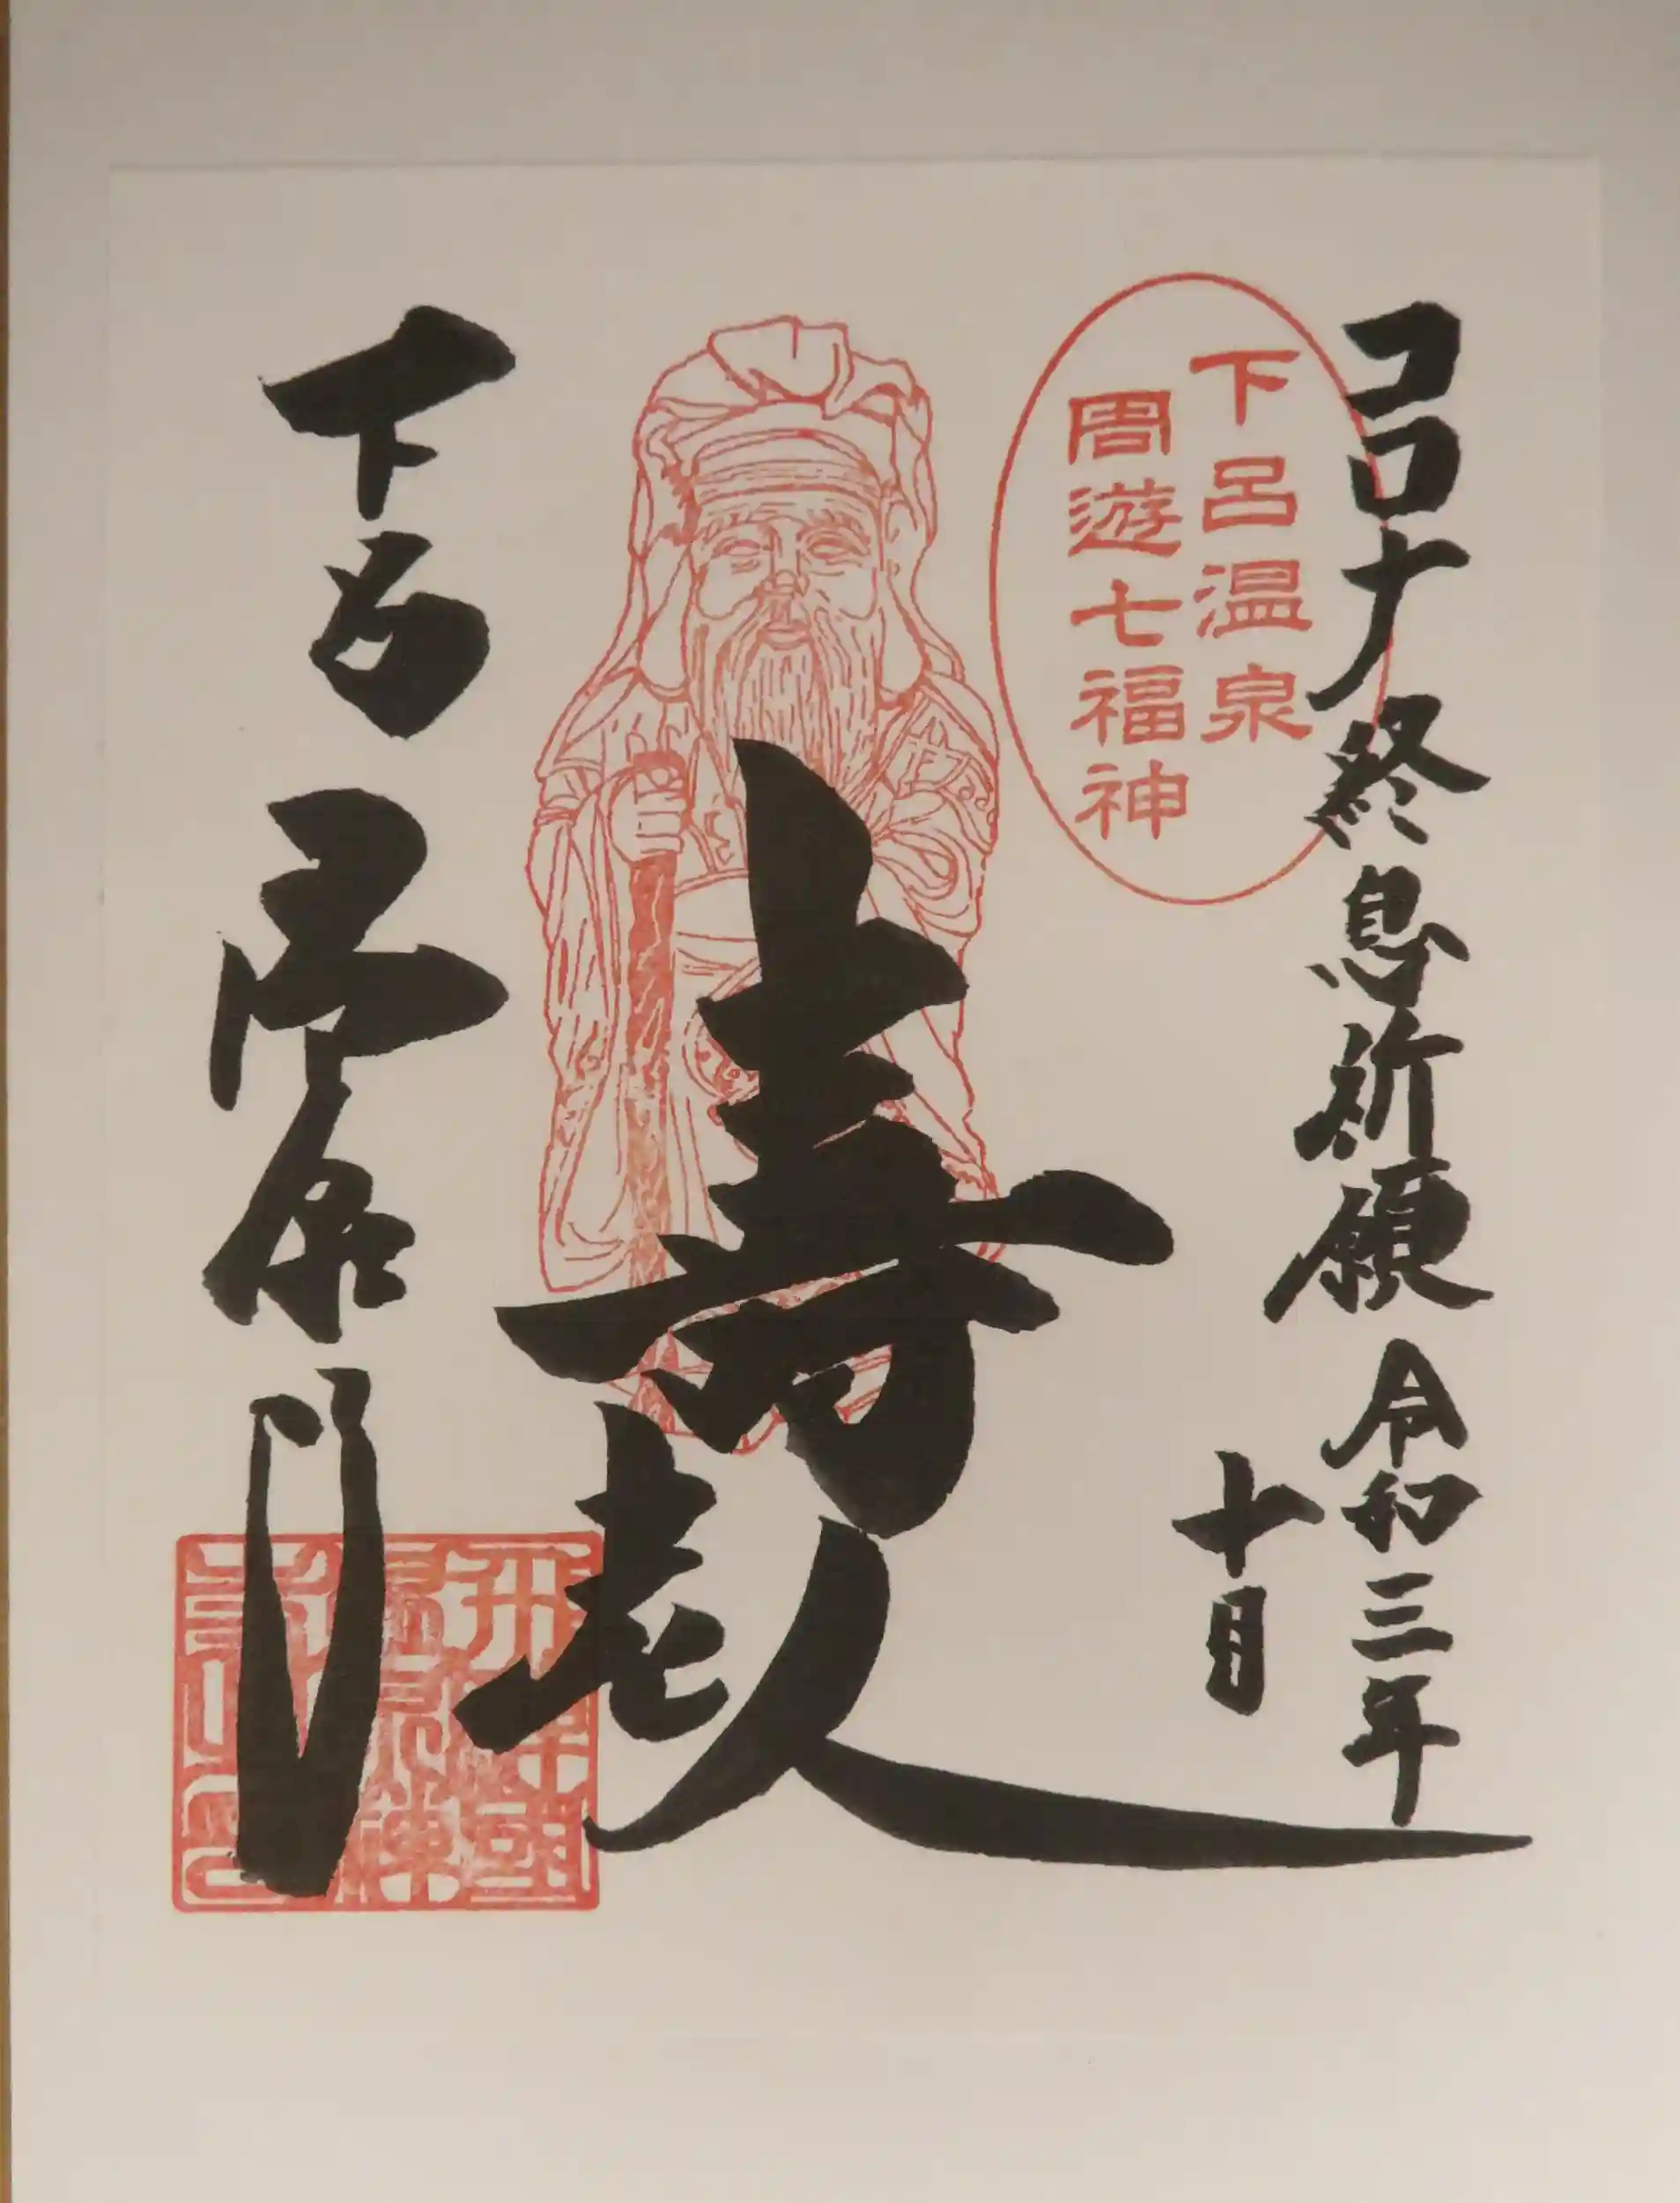 コロナ終息祈願 令和三年
十月
下呂温泉
周遊七福神
寿老人
下呂